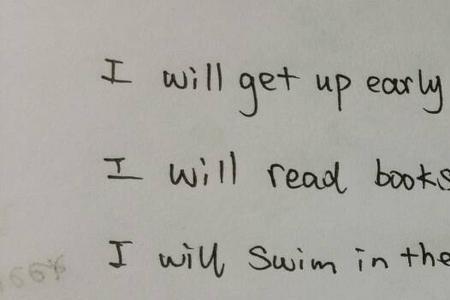 I will get up early
I will read books
I will Swim in the